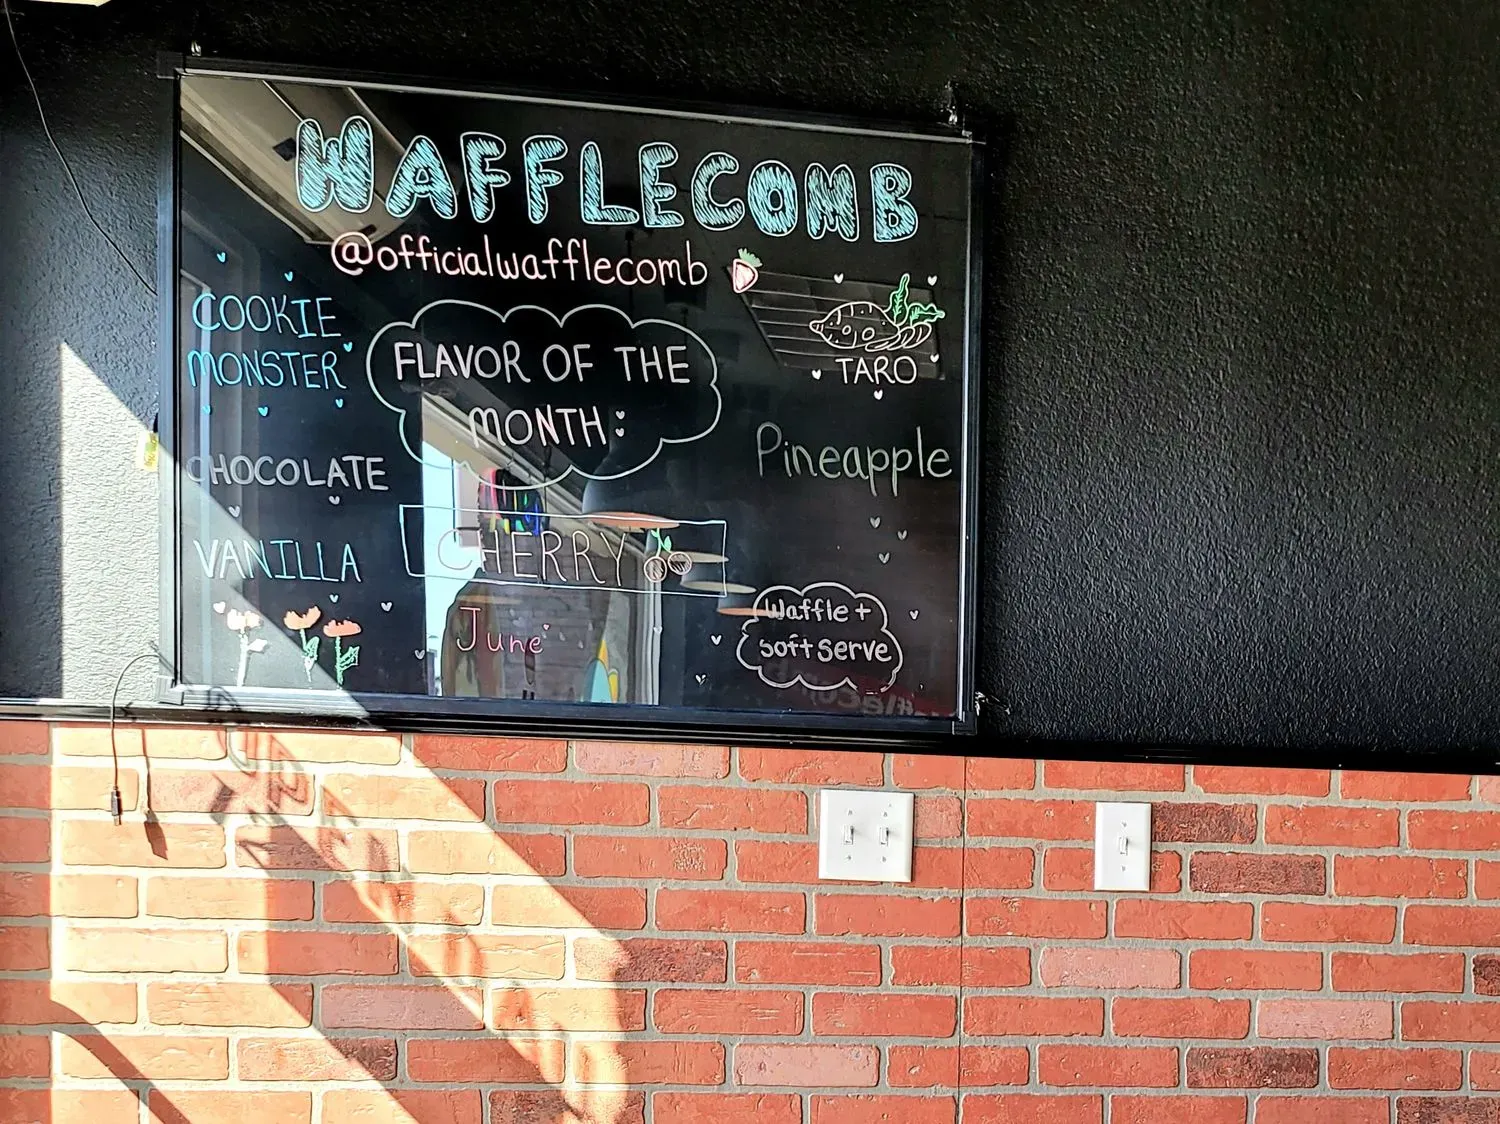 WAFFLECOMB
@officialwafflecomb
COOKIE
MONSTER
CHOCOLATE
VANILLA
FLAVOR OF THE
MONTH:
CHERRY
June
TARO
Pineapple
Waffle +
soft serve